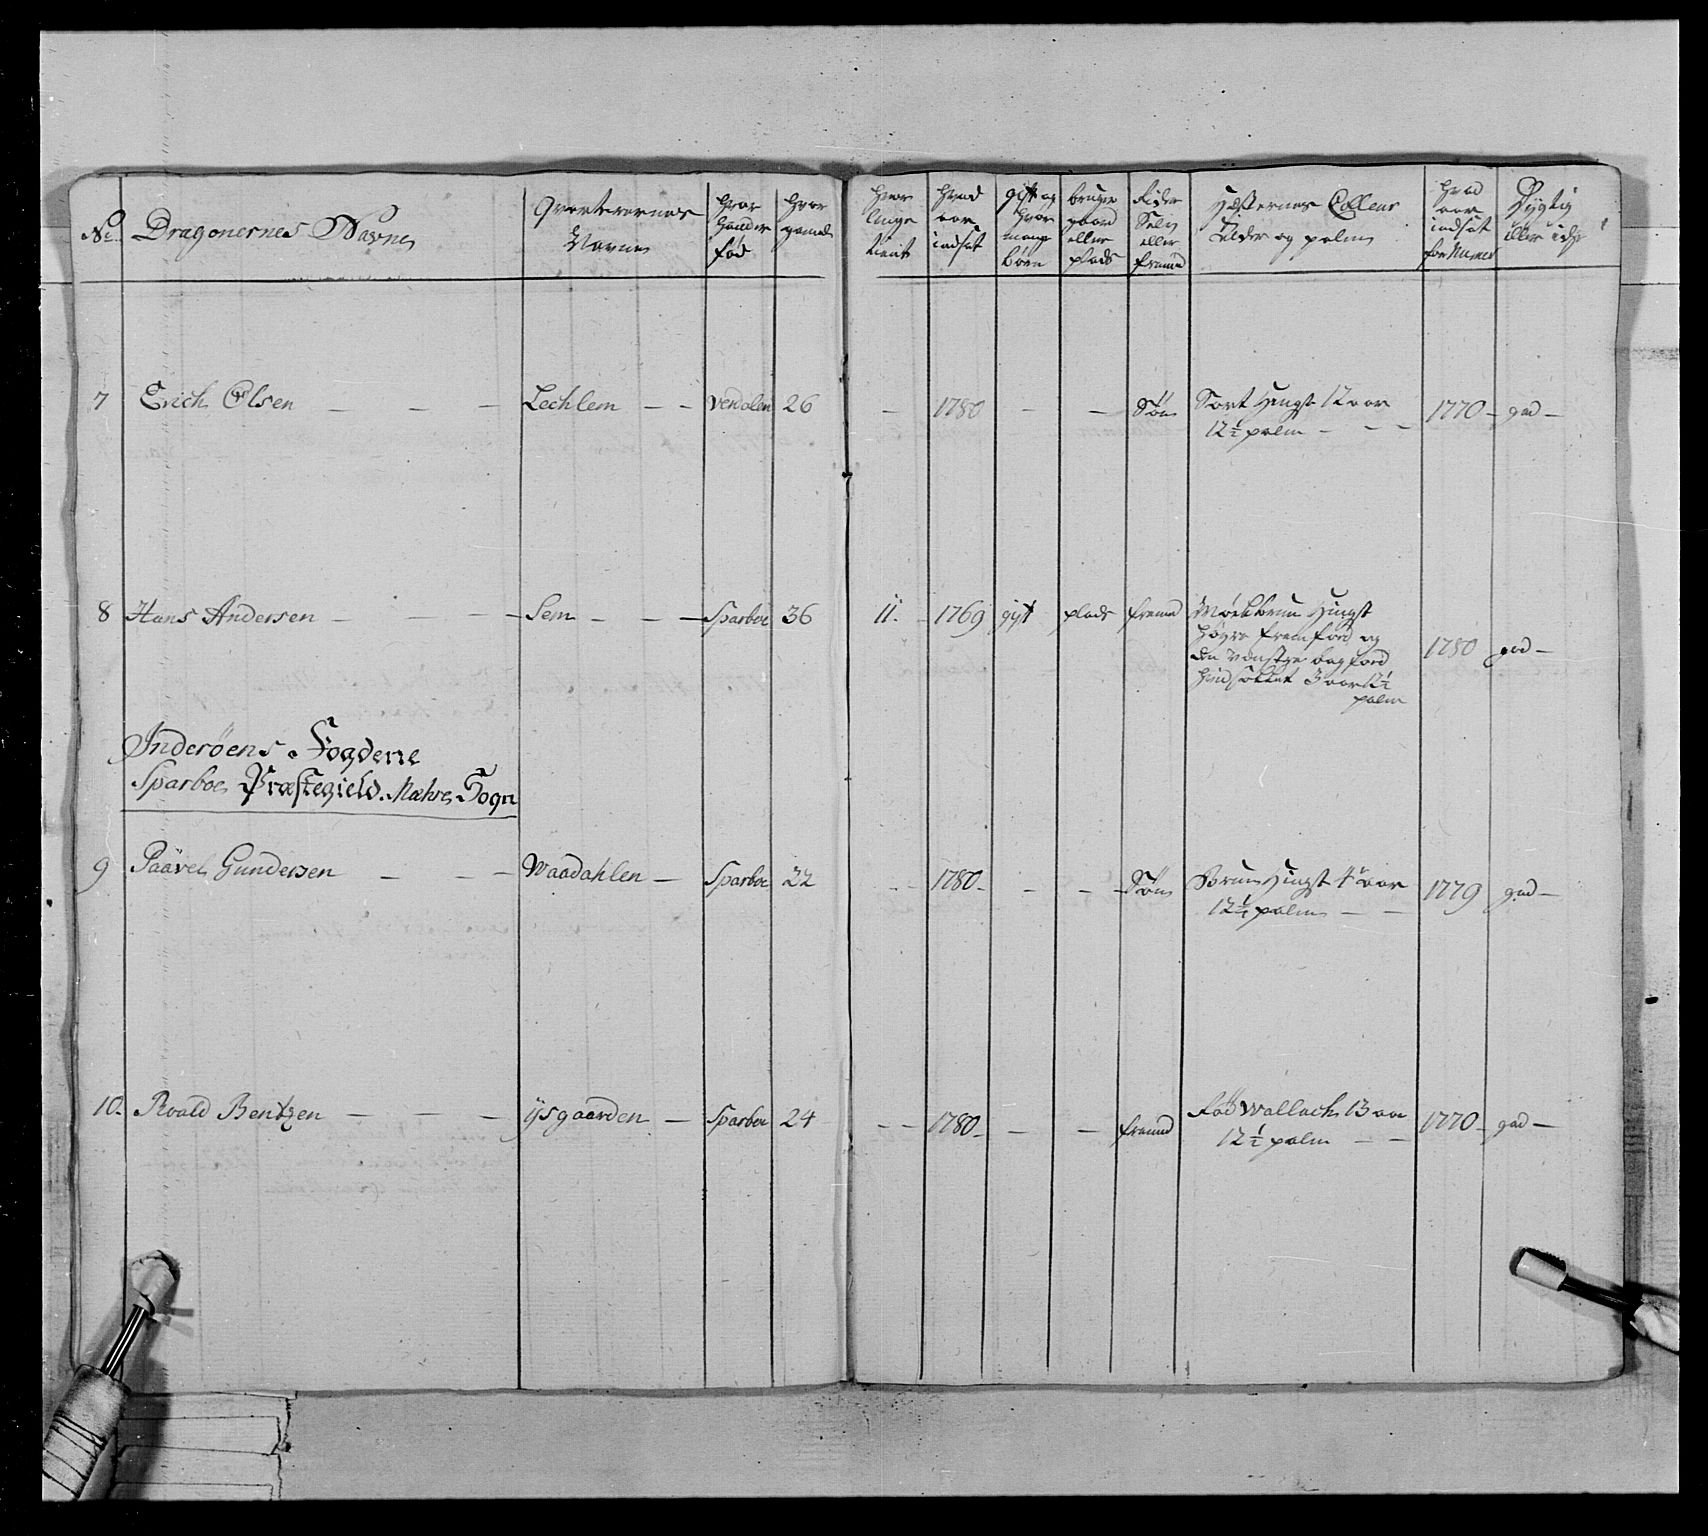 No. Dragonernes Navne
Qvarterernes Navne
hvor hand er fød
hvor gamel
hvor lenge tient
hvad aar indsat
gift og hvor mange børn
bruger gaard eller plads
Rider Selv eller fremd
Hæsternes Colleur Elder og palm
hvad aar indsat for Numer
Dygtig eller ikke
7 Erich Olsen — — — Lechlem — — Verdalen 26 — 1780 — — Søn Sort Hengst 12 aar 12½ palm — — — 1770 — god —
8 Hans Andersen — — — Sem — — — Sparboe 36 11. — 1769 gift plads fremd Mørkbrun Hingst
høyre fremfod og
den venstre bagfod
hvidsokket 3 aar 12½
palm
1780 god —
Inderöens Fogderie
Sparboe Præstegield. Mæhre Sogn
9 Paavel Gundersen — — — Waadahlen — Sparboe 22 — — 1780 — — — Søn Brun Hingst 4 aar 12½ palm — — 1779 god —
10. Roald Bentzen — — — ÿsgaarden — Sparboe 24 — — 1780 — — — fremd Rød Wallach 13 aar 12½ palm — — 1770 — god —